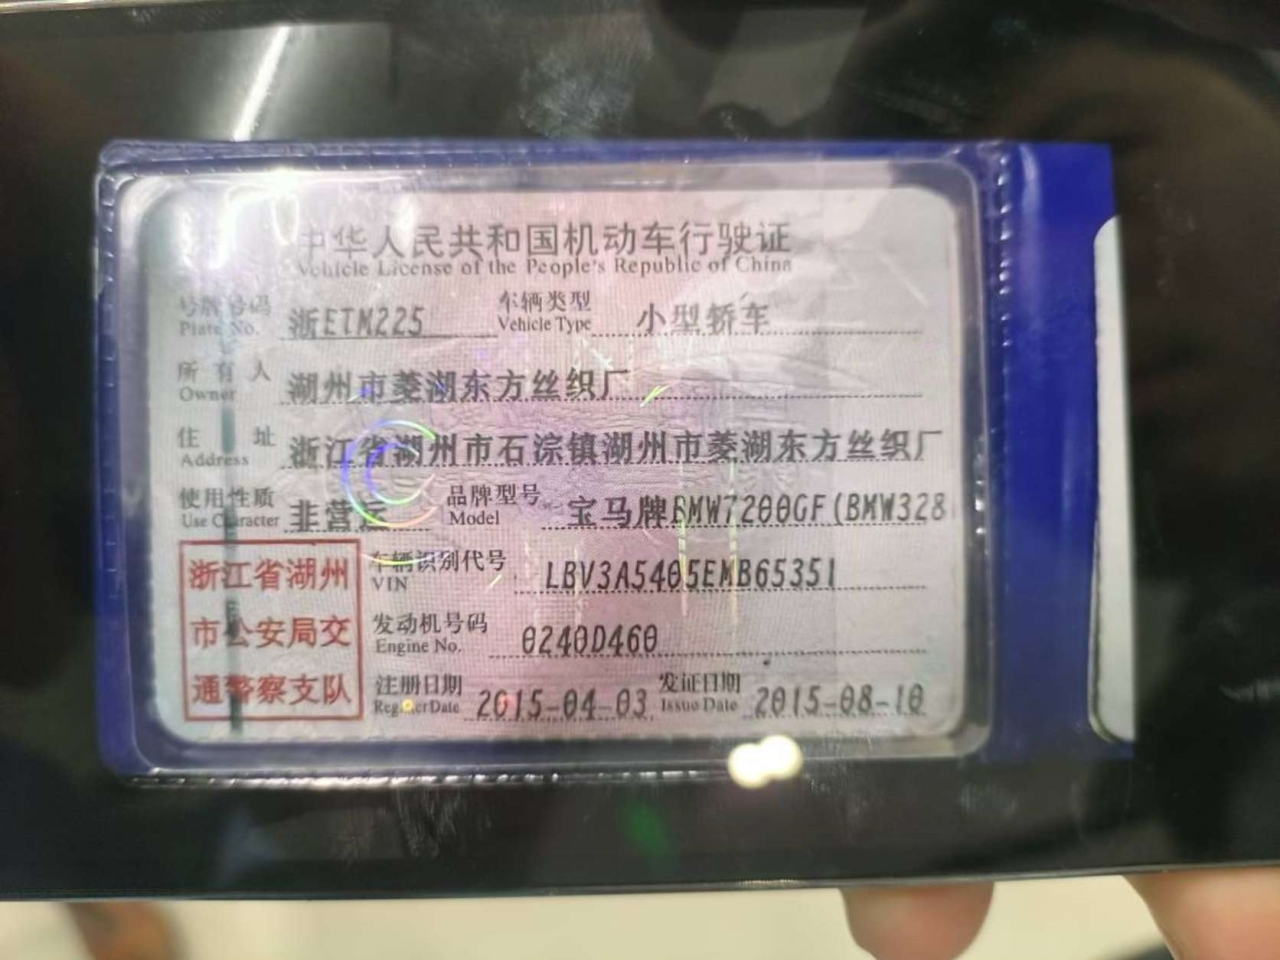 中华人民共和国机动车行驶证
Vehicle License of the People's Republic of China
号牌号码 浙ETM225 车辆类型 小型轿车
Plate No. Vehicle Type
所有人 湖州市菱湖东方丝织厂
Owner
住址 浙江省湖州市石淙镇湖州市菱湖东方丝织厂
Address
使用性质 非营运 品牌型号 宝马牌BMW7200GF(BMW328
Use Character Model
浙江省湖州
市公安局交
通警察支队
车辆识别代号 LBV3A5405EMB65351
VIN
发动机号码 0240D460
Engine No.
注册日期 2015-04-03 发证日期 2015-08-10
Register Date Issue Date